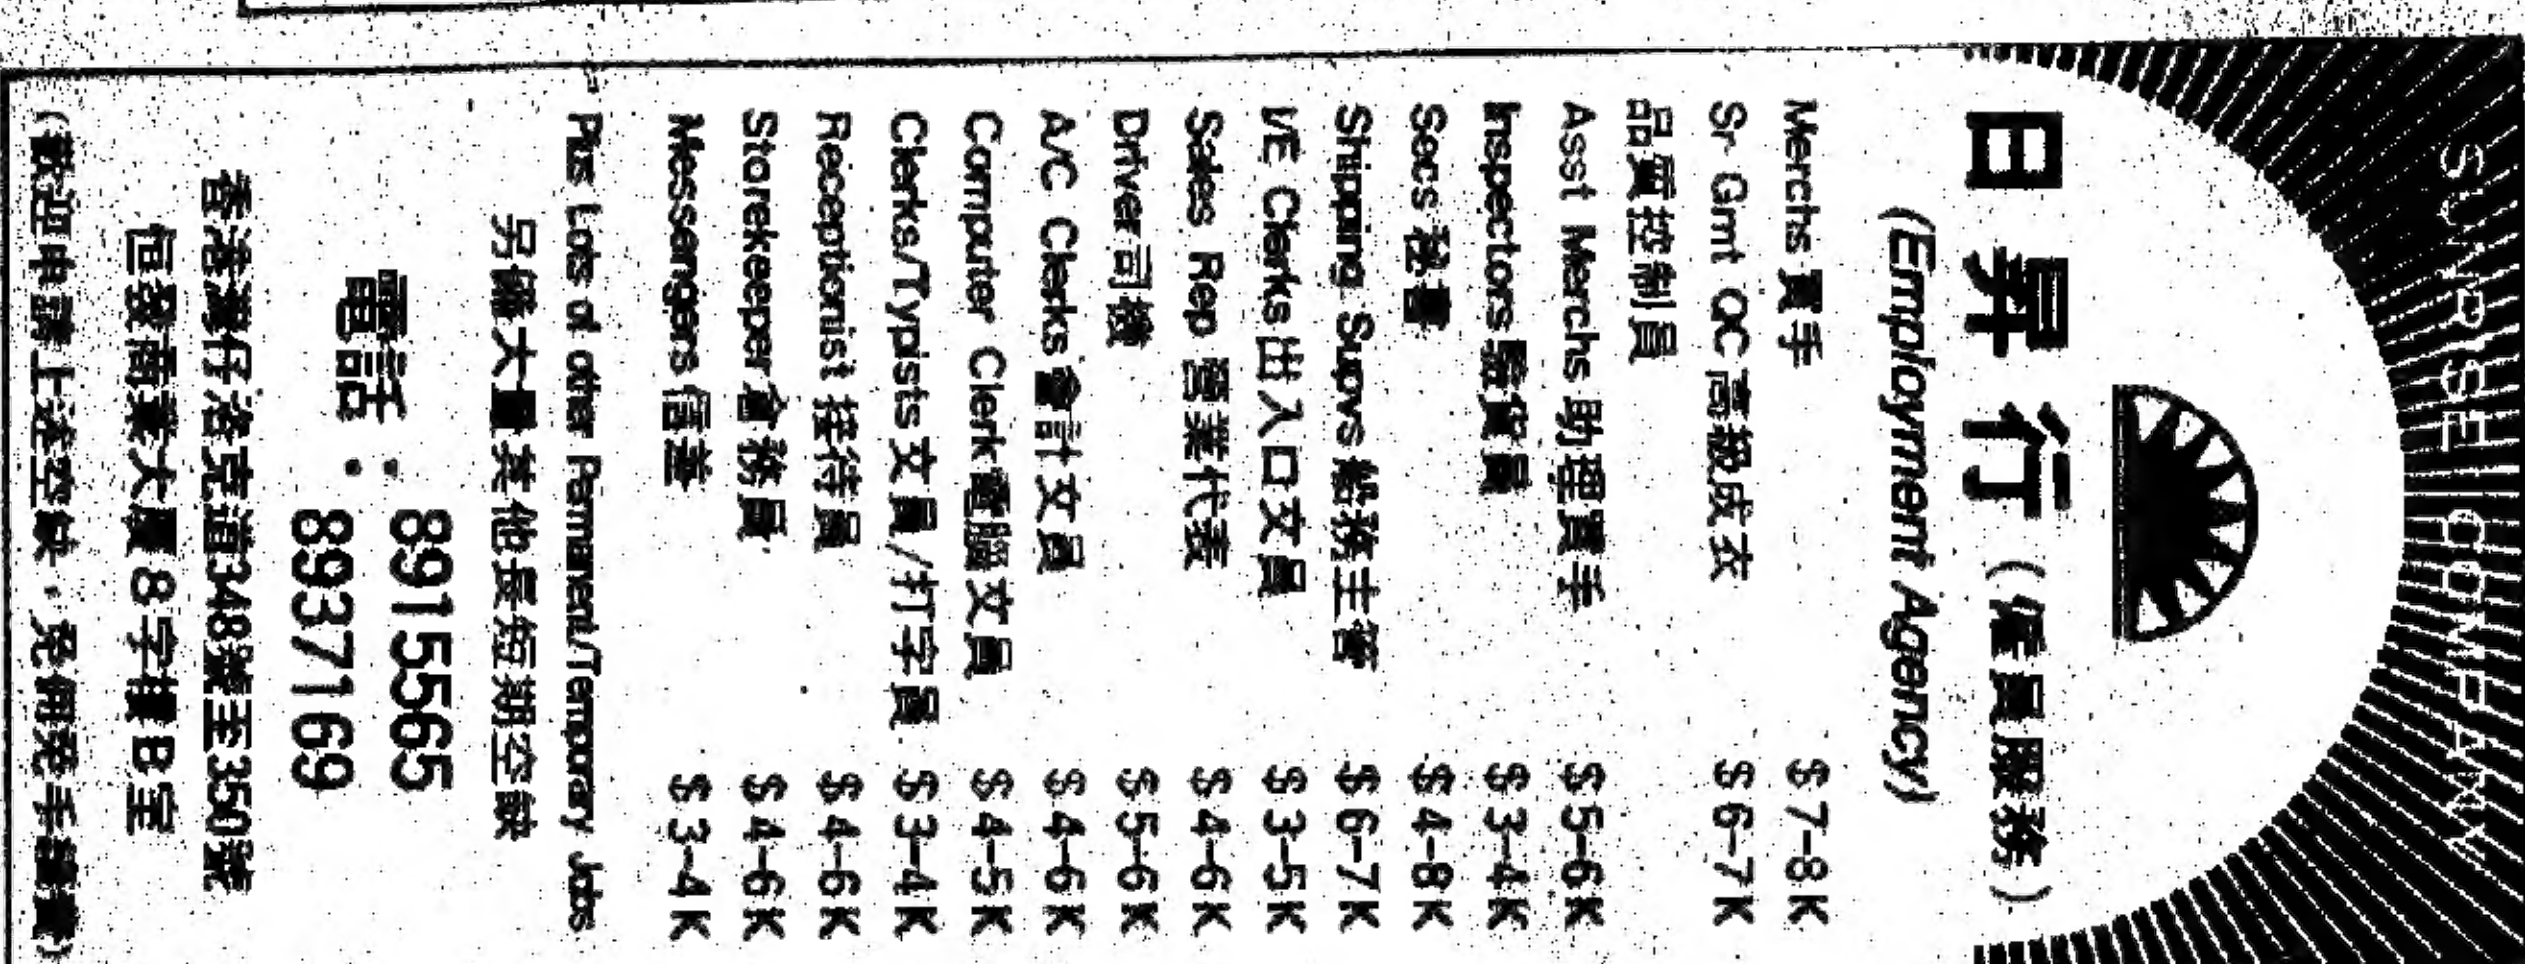 SUNRISE COMPANY
日昇行（僱員服務）
(Employment Agency)
Merchs 買手 $7-8K
Sr Gmt QC 高級成衣 $6-7K
品質控制員
Asst Merchs 助理買手 $5-6K
Inspectors 驗貨員 $3-4K
Secs 秘書 $4-8K
Shipping Supvs 船務主管 $6-7K
I/E Clerks 出入口文員 $3-5K
Sales Rep 營業代表 $4-6K
Driver 司機 $5-6K
A/C Clerks 會計文員 $4-6K
Computer Clerk 電腦文員 $4-5K
Clerks/Typists 文員/打字員 $3-4K
Receptionist 接待員 $4-6K
Storekeeper 倉務員 $4-6K
Messengers 信差 $3-4K
Plus Lots of other Permanent/Temporary Jobs
另備大量其他長短期空缺
電話：8915565
8937169
香港灣仔洛克道348號至350號
恒發商業大廈8字樓B室
（歡迎申請上述空缺，免佣免手續費）